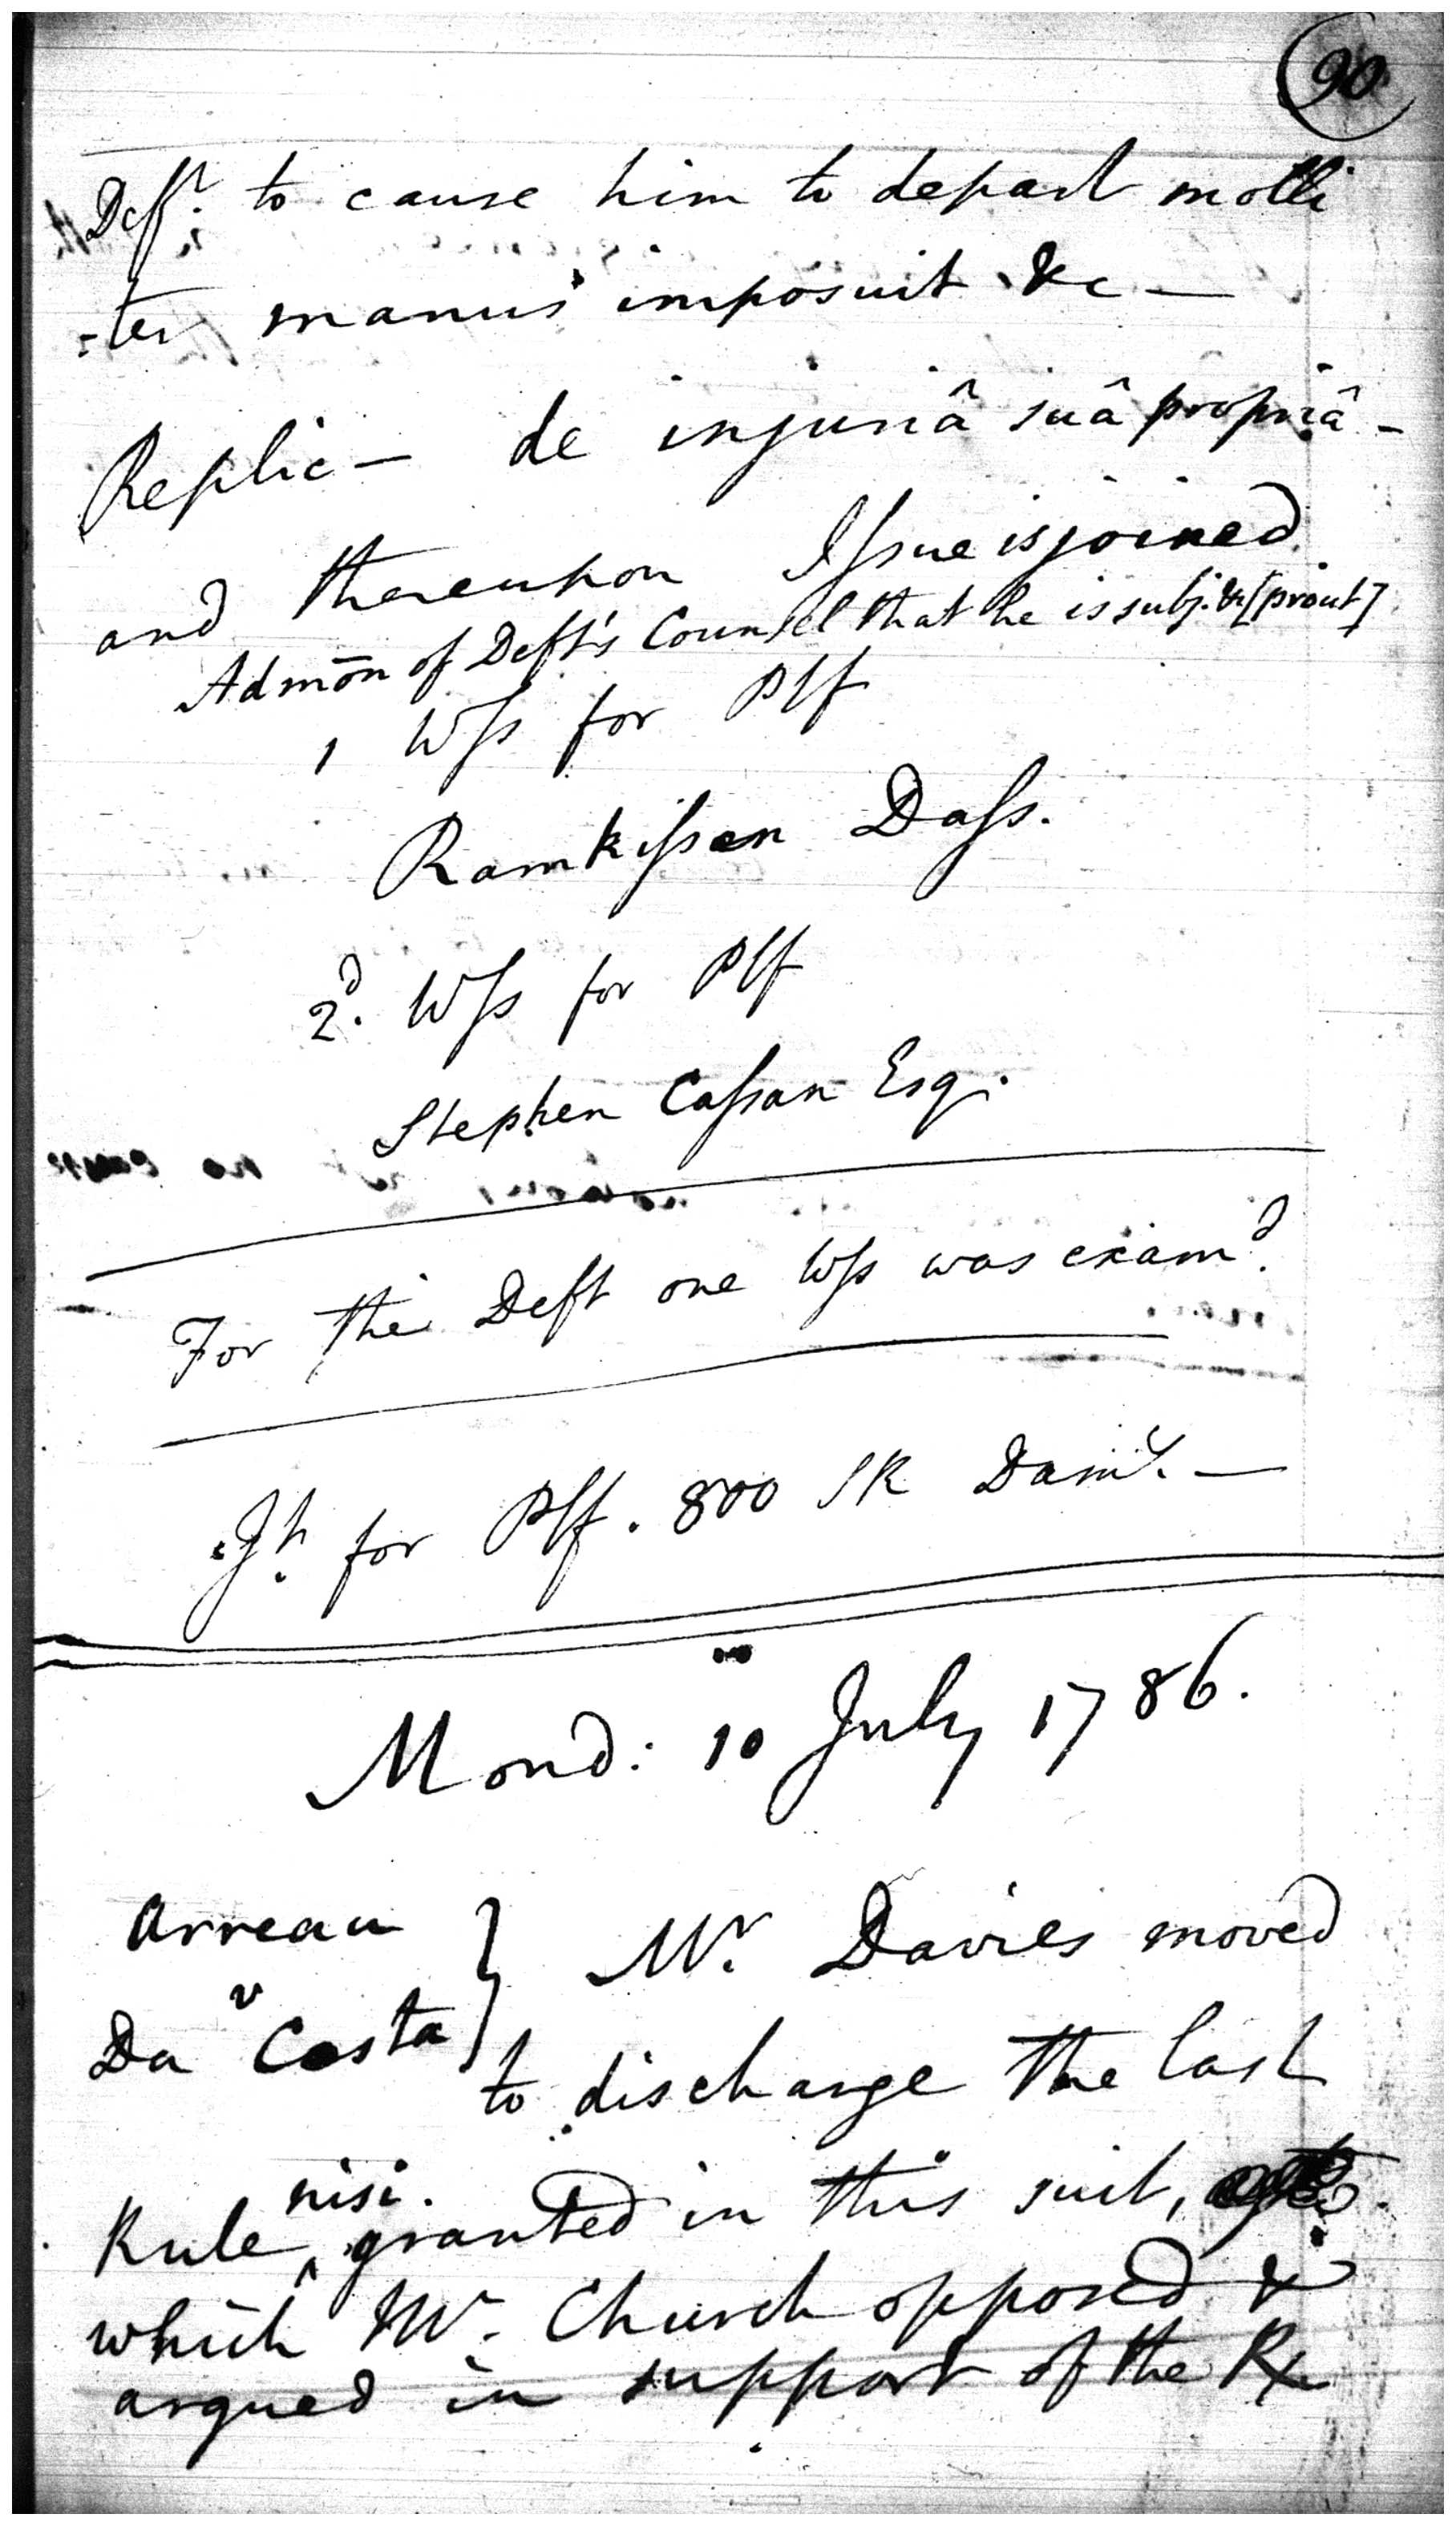 90
Deft. to cause him to depart molli
-ter manus imposuit &c —
Replic — de injuriâ suâ propriâ -
and thereupon Issue is joined
Admōn of Deft's Counsel that he is subj. &c [prout]
1 Wss for Plf
Ramkissen Dass.
2d. Wss for Plf
Stephen Cassan Esq.
For the Deft one Wss was examd.
Jt. for Plf. 800 SR Dams. —
Mond: 10 July 1786.
Arreau
v
Da Costa } Mr. Davies moved
to discharge the last
Rule nisi. granted in this suit,
which Mr. Church opposed &
argued in support of the R